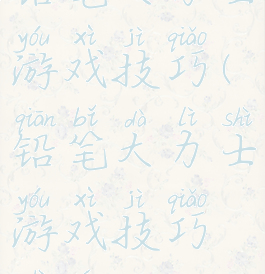 yóu xì jì qiǎo
游戏技巧(
qiān bǐ dà lì shì
铅笔大力士
yóu xì jì qiǎo
游戏技巧